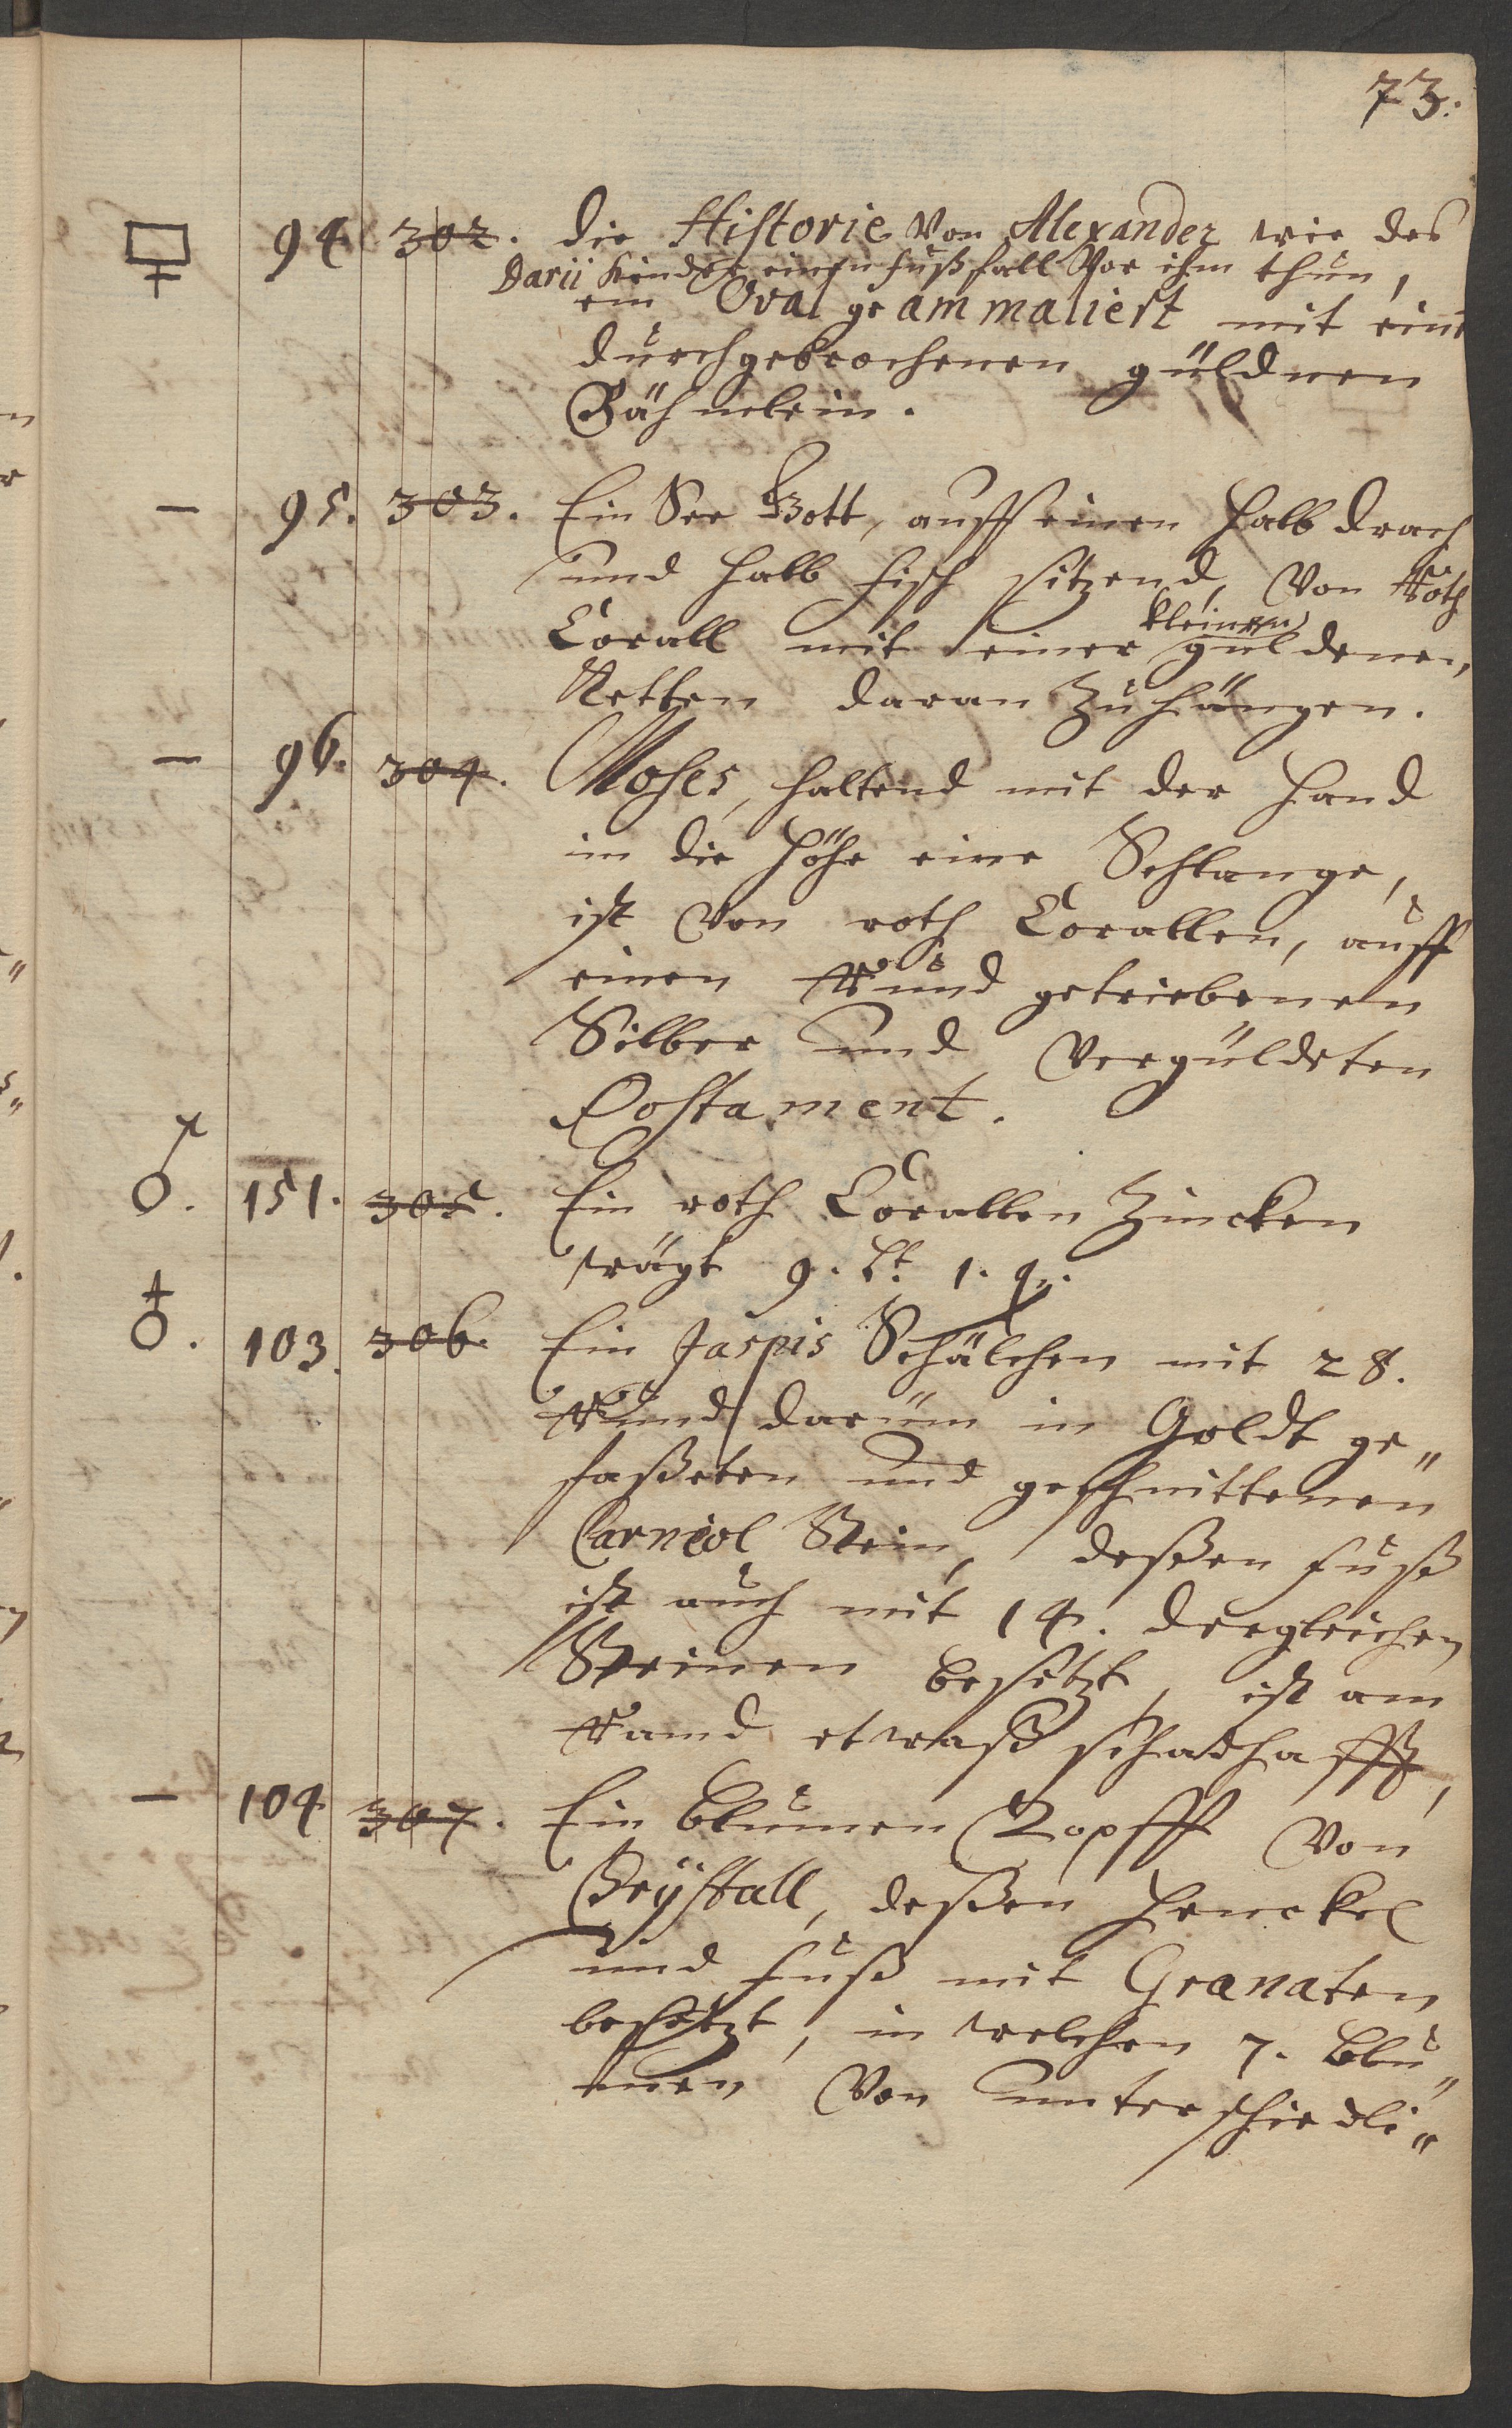 73.
94. 302. die Historie Von Alexander wie des
Darii Kinder einen fußfall Vor ihm thun,
ein Oval geammaliert mit einē
durchgebrochenen güldnen
Räh mlein.
95. 303. Ein See Gott, auff einen halb drach
und halb fisch sitzend, Von Roth
kleinen
Corall mit einer güldenen
Ketten daran Zuhängen.
96. 304. Moses, haltend mit der Hand
in die Höhe eine Schlange,
ist Von roth Corallen, auff
einen Rund getriebenen
Silber und Vergüldeten
Postament.
151. 305. Ein roth Corallen Zincken
wägt 9. Lt. 1. q.
103. 306. Ein Jaspis Schälchen mit 28.
Rund darüm in Goldt ge„
faßeten und geschnittenen
Carneol Stein, deßen fuß
ist auch mit 14. dergleichen
Steinen besetzt, ist am
Rand etwaß schadhafft,
104 307. Ein blumen Topff Von
Crÿstall, deßen Henckel
und fuß mit Granaten
besetzt, in welchen 7. blu„
men Von unterschiedli„